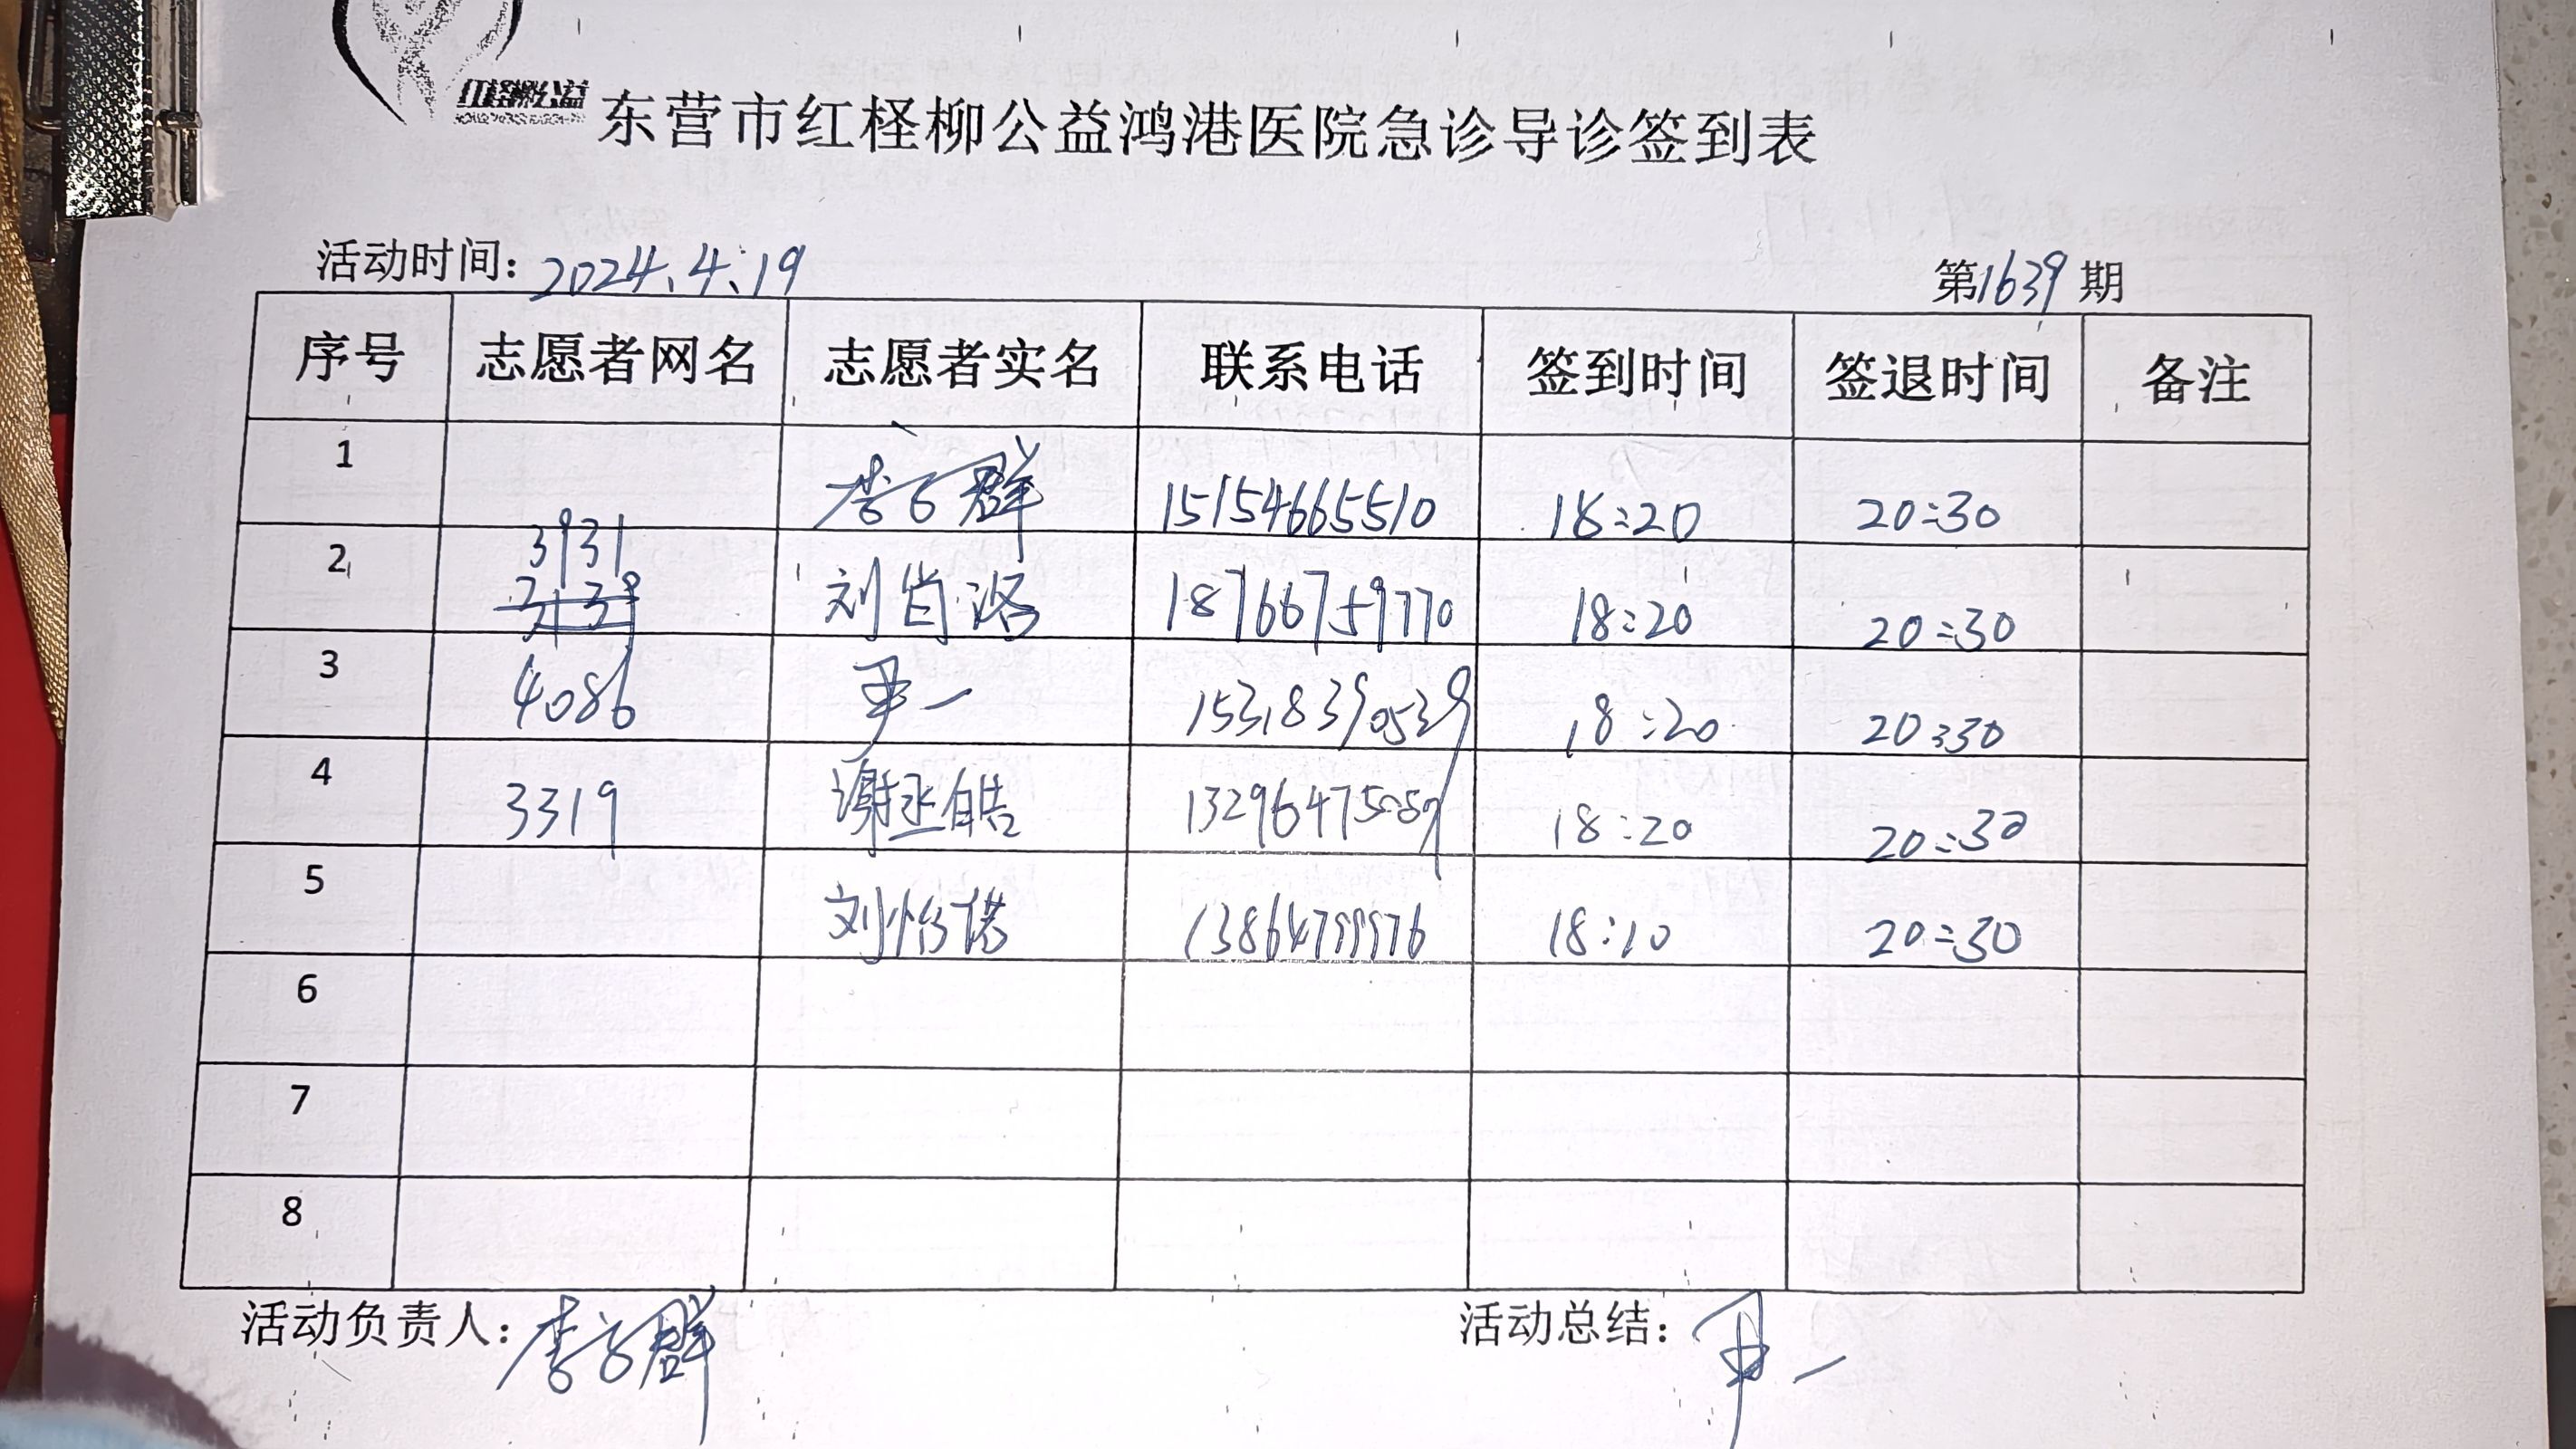 红柽柳公益
东营市红柽柳公益鸿港医院急诊导诊签到表
活动时间：2024.4.19 第1639期
序号 志愿者网名 志愿者实名 联系电话 签到时间 签退时间 备注
1 李子群 15154665510 18:20 20:30
3931
2 刘肖洛 18766759770 18:20 20:30
3 4086 尹一 15318390539 18:20 20:30
4 3319 谢丞皓 18:20 20:30
5 刘怡 18:10 20:30
6
7
8
活动负责人：李子群 活动总结：尹一